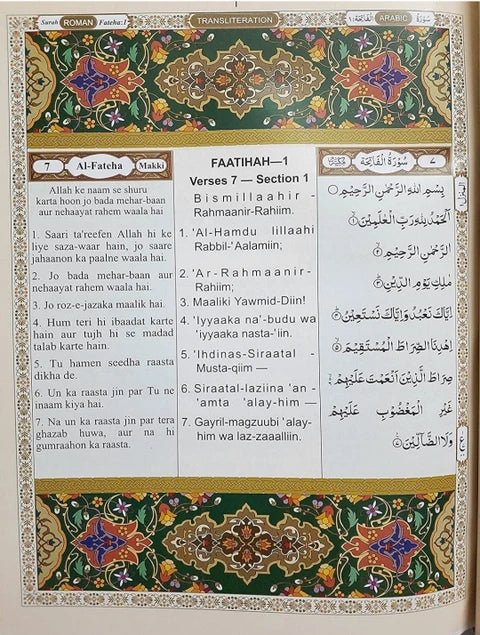 Surah ROMAN Fateha:1
TRANSLITERATION
سُورَة ARABIC الفَاتِحَة:١
7 Al-Fateha Makki
Allah ke naam se shuru
karta hoon jo bada mehar-baan
aur nehaayat rahem waala hai
1. Saari ta'reefen Allah hi ke
liye saza-waar hain, jo saare
jahaanon ka paalne waala hai.
2. Jo bada mehar-baan aur
nehaayat rahem waala hai.
3. Jo roz-e-jazaka maalik hai.
4. Hum teri hi ibaadat karte
hain aur tujh hi se madad
talab karte hain.
5. Tu hamen seedha raasta
dikha de.
6. Un ka raasta jin par Tu ne
inaam kiya hai.
7. Na un ka raasta jin par tera
ghazab huwa, aur na hi
gumraahon ka raasta.
FAATIHAH—1
Verses 7 — Section 1
Bismillaahir-
Rahmaanir-Rahiim.
1. 'Al-Hamdu lillaahi
Rabbil-'Aalamiin;
2. 'Ar-Rahmaanir-
Rahiim;
3. Maaliki Yawmid-Diin!
4. 'Iyyaaka na'-budu wa
'iyyaaka nasta-'iin.
5. 'Ihdinas-Siraatal -
Musta-qiim —
6. Siraatal-laziina 'an -
'amta 'alay-him —
7. Gayril-magzuubi 'alay-
him wa laz-zaaalliin.
٧ سُوْرَةُ الْفَاتِحَة مَكِّيَّة
بِسْمِ اللهِ الرَّحْمٰنِ الرَّحِيْمِ
اَلْحَمْدُ لِلّٰهِ رَبِّ الْعٰلَمِيْنَ ۙ۱
الرَّحْمٰنِ الرَّحِيْمِ ۙ۲
مٰلِكِ يَوْمِ الدِّيْنِ ؕ۳
اِيَّاكَ نَعْبُدُ وَاِيَّاكَ نَسْتَعِيْنُ ؕ۴
اِهْدِنَا الصِّرَاطَ الْمُسْتَقِيْمَ ۙ۵
صِرَاطَ الَّذِيْنَ اَنْعَمْتَ عَلَيْهِمْ ۙ۶
غَيْرِ الْمَغْضُوْبِ عَلَيْهِمْ
وَلَا الضَّآلِّيْنَ ۷
ع